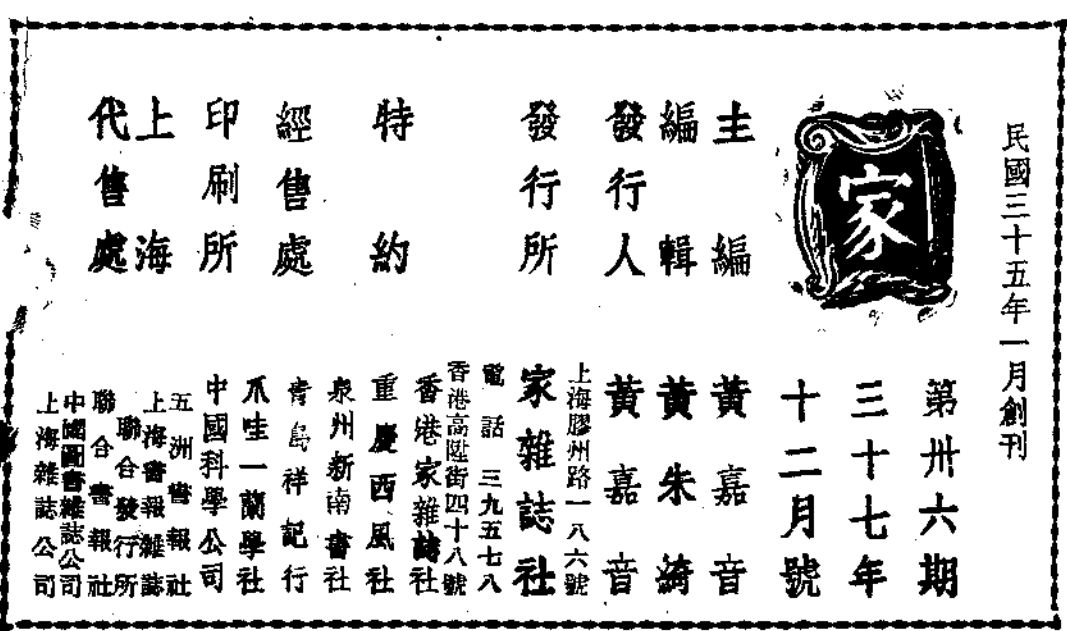 民國三十五年一月創刊
家
第卅六期
三十七年
十二月號
主編 黃嘉音
編輯 黃朱綺
發行人 黃嘉音
發行所 家雜誌社
上海膠州路一八六號
電話 三九五七八
特約
經售處
香港家雜誌社
香港高陞街四十八號
重慶西風社
泉州新南書社
青島祥記行
爪哇一蘭學社
印刷所 中國科學公司
上海
代售處
五洲書報社
上海書報雜誌
聯合發行所
聯合書報社
中國圖書雜誌公司
上海雜誌公司